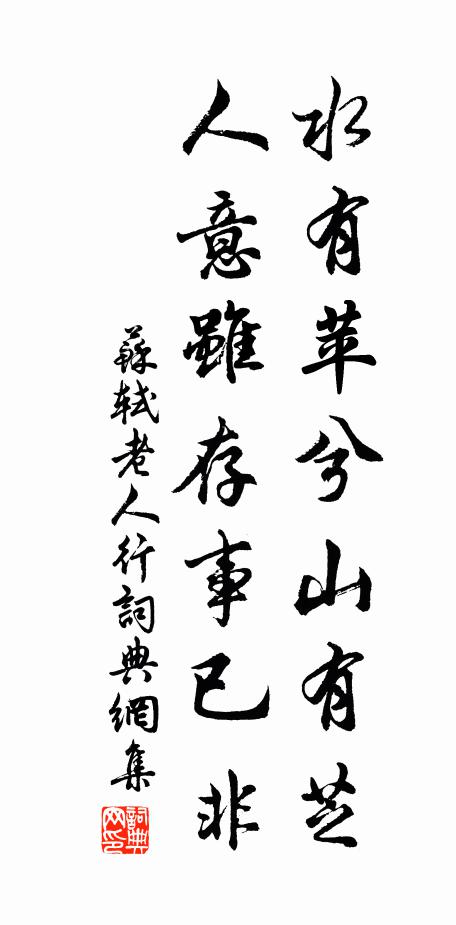 水有苹兮山有芝
人意雖存事已非
蘇軾老人行詞典網集
詞典網印